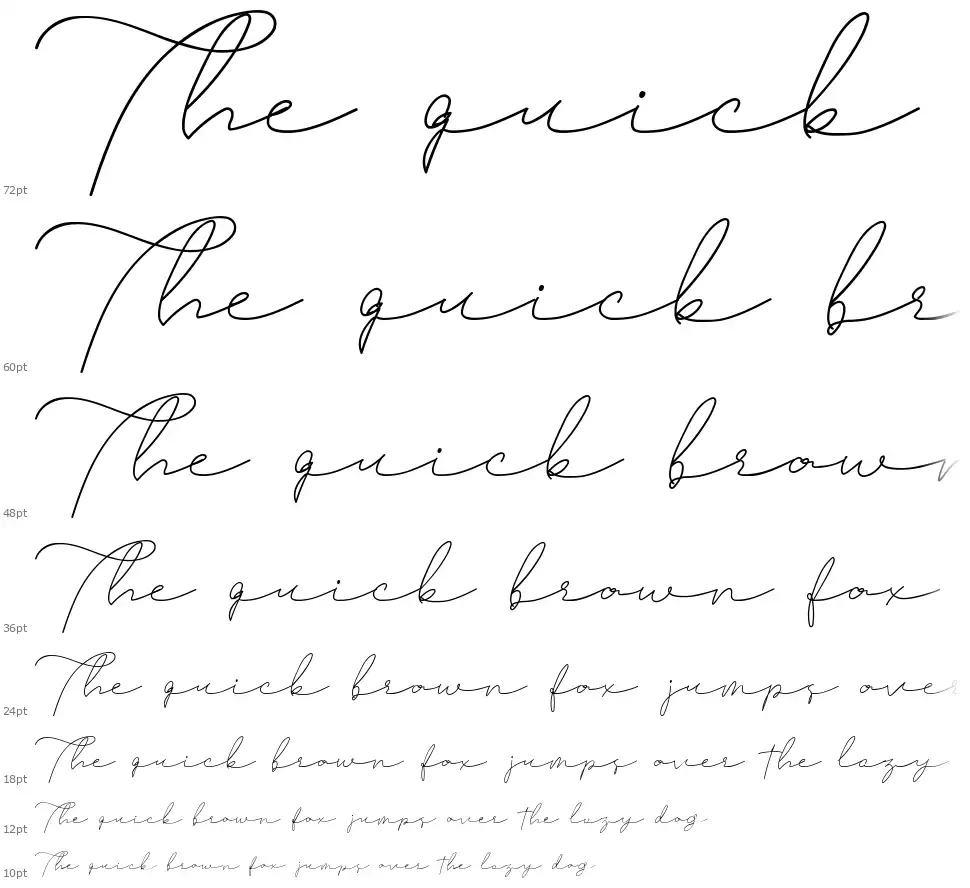 The quick
72pt
The quick br
60pt
The quick brown
48pt
The quick brown fox
36pt
The quick brown fox jumps over
24pt
The quick brown fox jumps over the lazy
18pt
The quick brown fox jumps over the lazy dog
12pt
The quick brown fox jumps over the lazy dog
10pt